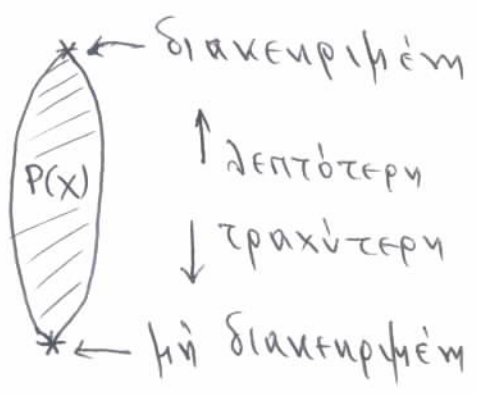 διακεκριμένη
λεπτότερη
P(X)
τραχύτερη
μή διακεκριμένη